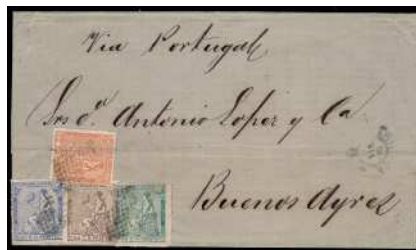 Via Portugal
Sres Dn. Antonio Lopez y Ca
Buenos Ayres